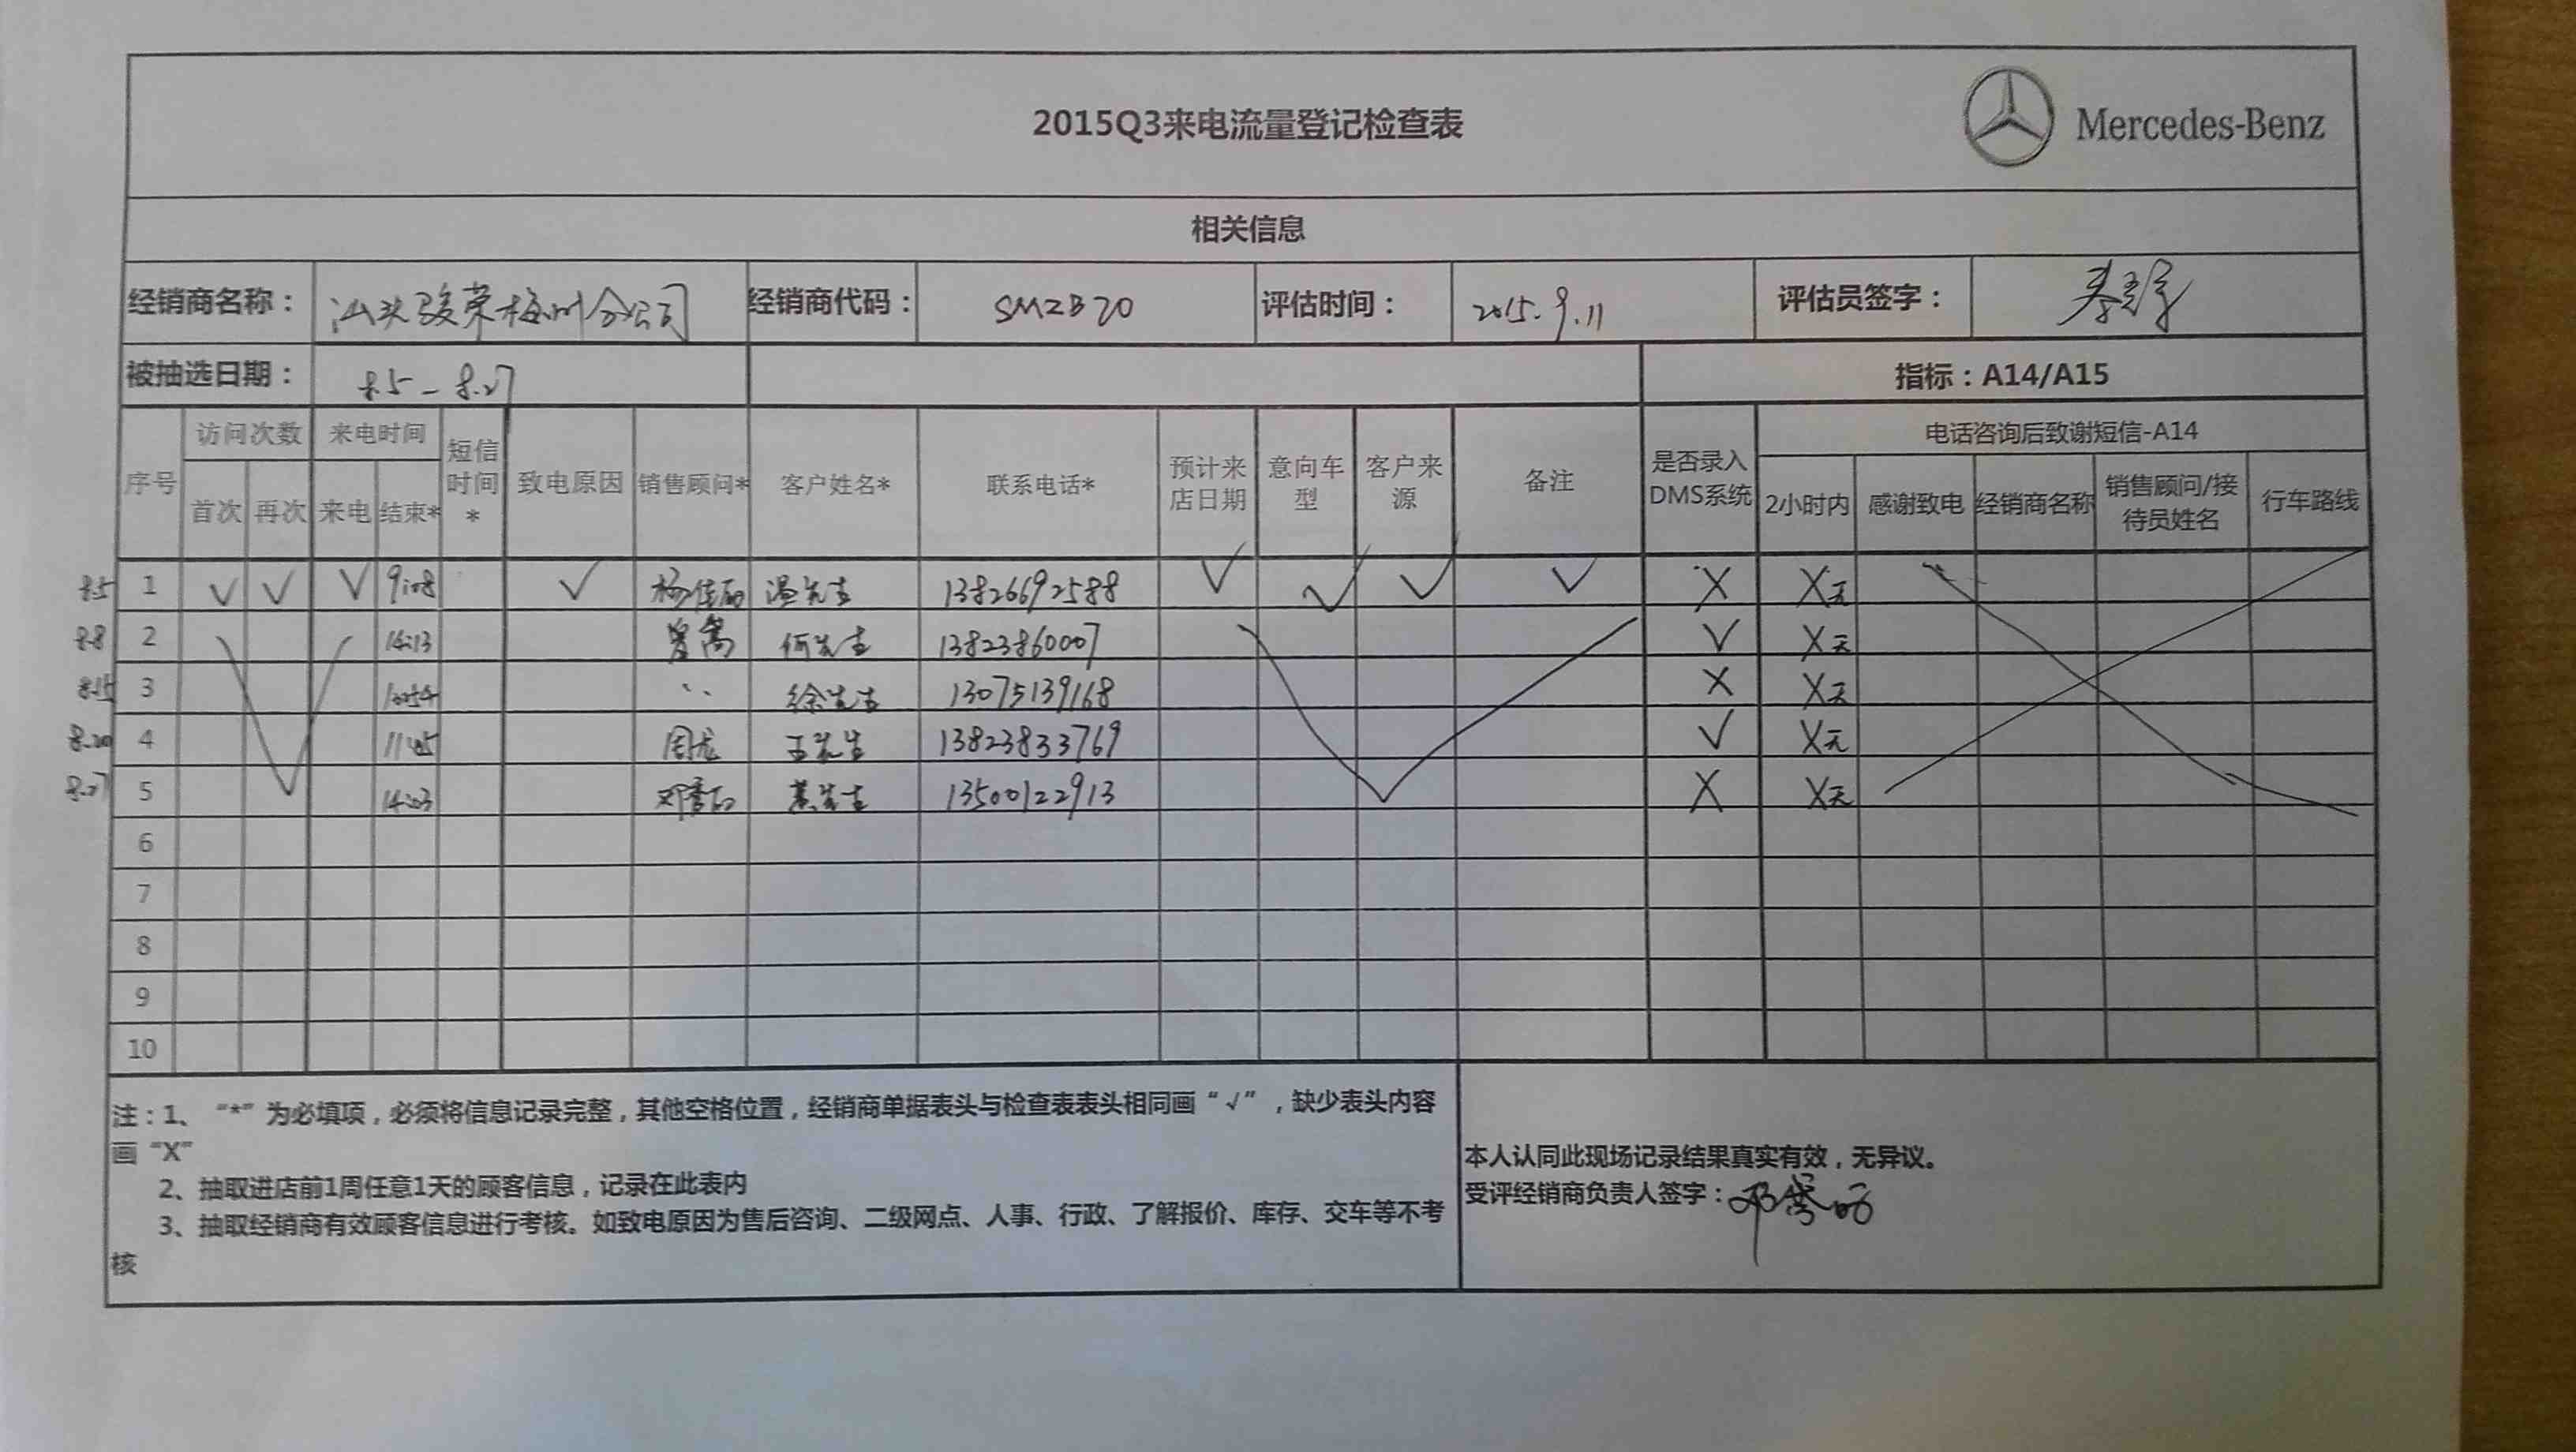 2015Q3来电流量登记检查表
Mercedes-Benz
相关信息
经销商名称： 汕头骏荣梅州分公司 经销商代码： SMZB70 评估时间： 2015.9.11 评估员签字：
被抽选日期： 8.5-8.27 指标：A14/A15
序号 访问次数 来电时间 短信时间* 致电原因 销售顾问* 客户姓名* 联系电话* 预计来店日期 意向车型 客户来源 备注 是否录入DMS系统 电话咨询后致谢短信-A14
首次 再次 来电 结束* 2小时内 感谢致电 经销商名称 销售顾问/接待员姓名 行车路线
8.5 1 √ √ √ √ 温先生 13826692588 √ √ √ √ X X无
8.8 2 14:13 何先生 13823860007 √ X无
8.15 3 徐先生 13075139168 X X无
8.20 4 周龙 王先生 13823833769 √ X无
8.27 5 14:03 黄先生 13500122913 X X无
6
7
8
9
10
注：1、“*”为必填项，必须将信息记录完整，其他空格位置，经销商单据表头与检查表表头相同画“√”，缺少表头内容
画“X”
2、抽取进店前1周任意1天的顾客信息，记录在此表内
3、抽取经销商有效顾客信息进行考核。如致电原因为售后咨询、二级网点、人事、行政、了解报价、库存、交车等不考
核
本人认同此现场记录结果真实有效，无异议。
受评经销商负责人签字：